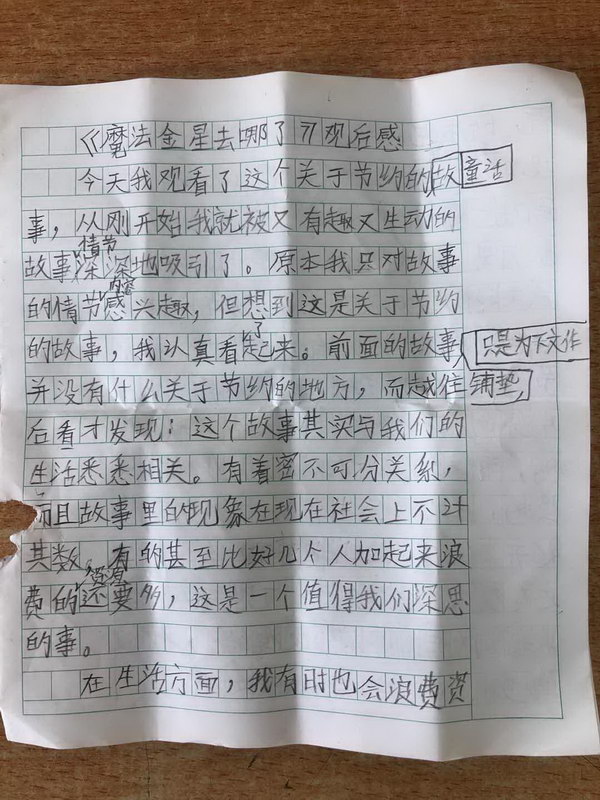 《魔法金星去哪了》观后感
今天我观看了这个关于节约的故 童话
事，从刚开始我就被又有趣又生动的
情节
故事深深地吸引了。原本我只对故事
内容
的情节感兴趣，但想到这是关于节约
了
的故事，我认真看起来。前面的故事 只是为下文作
并没有什么关于节约的地方，而越往 铺垫
后看才发现：这个故事其实与我们的
生活悉悉相关。有着密不可分关系，
而且故事里的现象在现在社会上不计
其数，有的甚至比好几个人加起来浪
资源
费的还要多，这是一个值得我们深思
的事。
在生活方面，我有时也会浪费资